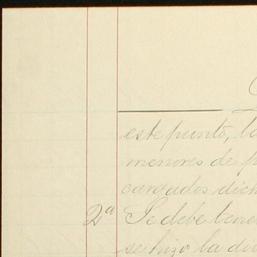 este punto, la
menores de p
cargados dich
2ª Se debe tener
se hizo la div